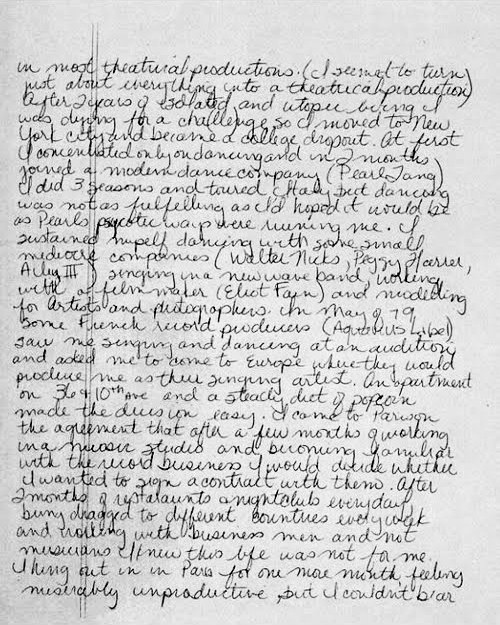 in most theatrical productions. (I seemed to turn
just about everything into a theatrical production)
After 2 years of isolated and utopic being I
was dying for a challenge so I moved to New
York city and became a college dropout. At first
I concentrated only on dancing and in 2 months
joined a modern dance company (Pearl Lang)
I did 3 seasons and toured Italy but dancing
was not as fulfilling as I'd hoped it would be
as Pearls psycotic ways were ruining me. I
sustained myself dancing with some small
mediocre companies (Walter Nicks, Peggy Harrer,
Ailey III) singing in a new wave band, working
with a film maker (Eliot Fain) and modelling
for Artists and photographers. In May of 79
some French record producers (Aquarius Libel)
saw me singing and dancing at an audition
and asked me to come to Europe where they would
produce me as their singing artist. An apartment
on 36 & 10th ave and a steady diet of popcorn
made the decision easy. I came to Paris on
the agreement that after a few months of working
in a music studio and becoming familiar
with the record business I would decide whether
I wanted to sign a contract with them. After
2 months of restaraunts & nightclubs everyday
being dragged to different countries every week
and working with business men and not
musicians I knew this life was not for me.
I hung out in in Paris for one more month feeling
miserably unproductive, but I couldn't bear